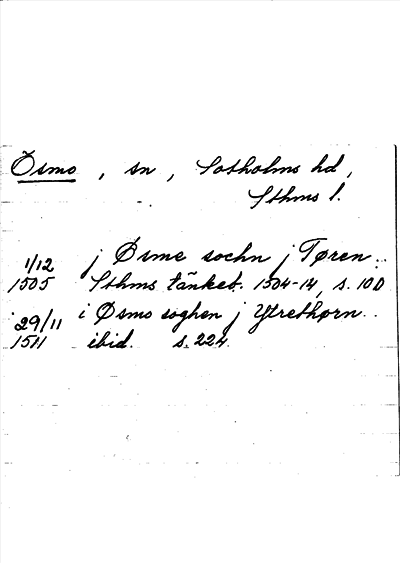 Ösmo, sn, Sotholms hd,
Sthms l.
1/12 j Øsme sochn j Tøren..
1505 Sthms tänkeb. 1504-14, s. 100
29/11 i Øsmo soghen j Ytrethørn..
1511 ibid. s. 224.